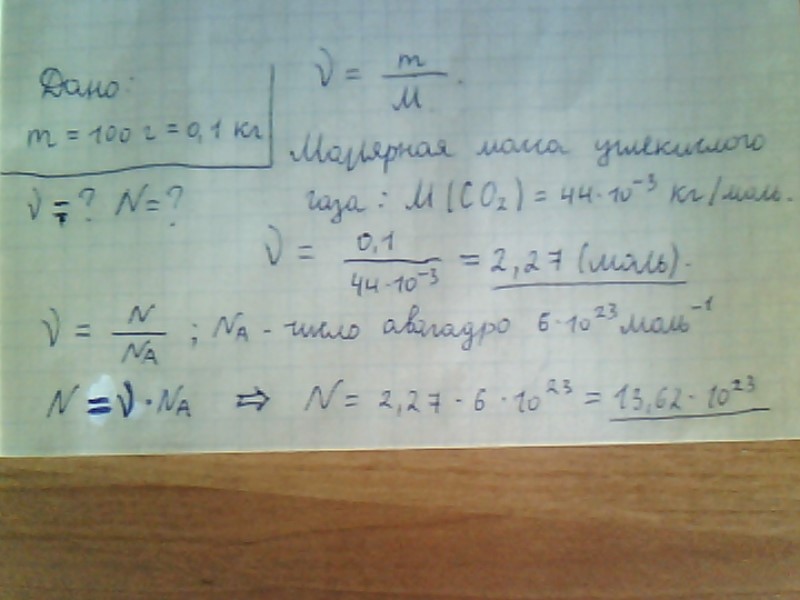 Дано:
m = 100 г = 0,1 кг
ν = ? N = ?
ν = m / M .
Молярная масса углекислого
газа : M (CO₂) = 44·10⁻³ кг/моль.
ν = 0,1 / 44·10⁻³ = 2,27 (моль).
ν = N / N_A ; N_A - число авагадро 6·10²³ моль⁻¹
N = ν · N_A ⇒ N = 2,27 · 6 · 10²³ = 13,62 · 10²³